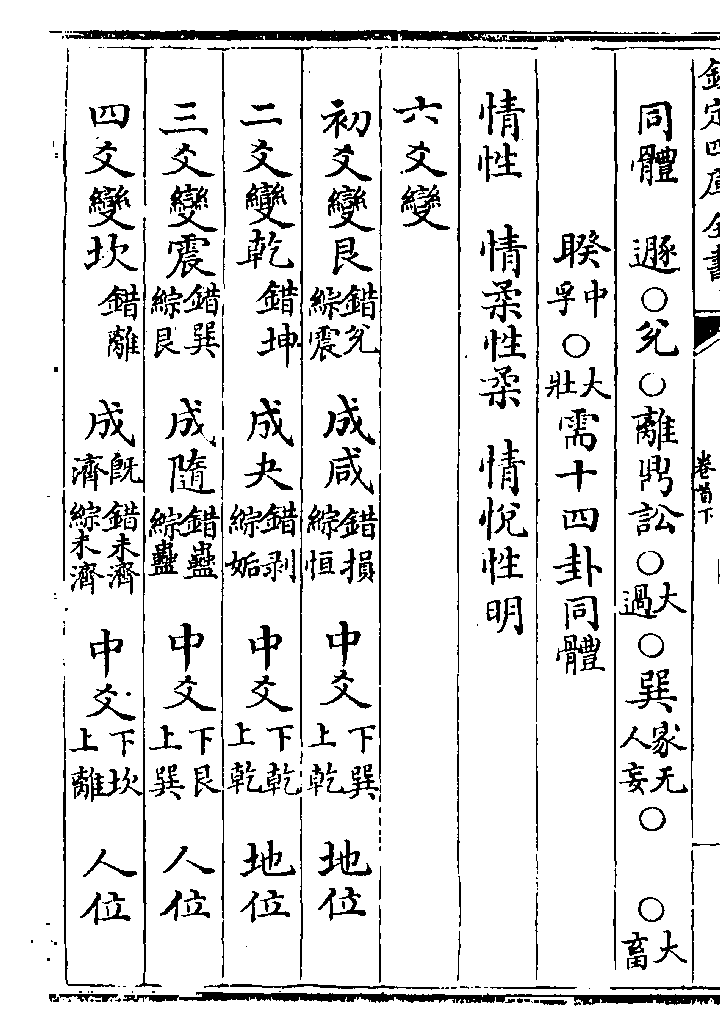 欽定四庫全書
卷首下
同體　遯○兌○離鼎訟○大過○巽家人无妄○　○大畜
睽中孚○大壯需十四卦同體
情性　情柔性柔　情悅性明
六爻變
初爻變艮錯兌綜震　成咸錯損綜恒　中爻下巽上乾　地位
二爻變乾錯坤　成夬錯剥綜姤　中爻下乾上乾　地位
三爻變震錯巽綜艮　成隨錯蠱綜蠱　中爻下艮上巽　人位
四爻變坎錯離　成既濟錯未濟綜未濟　中爻下坎上離　人位